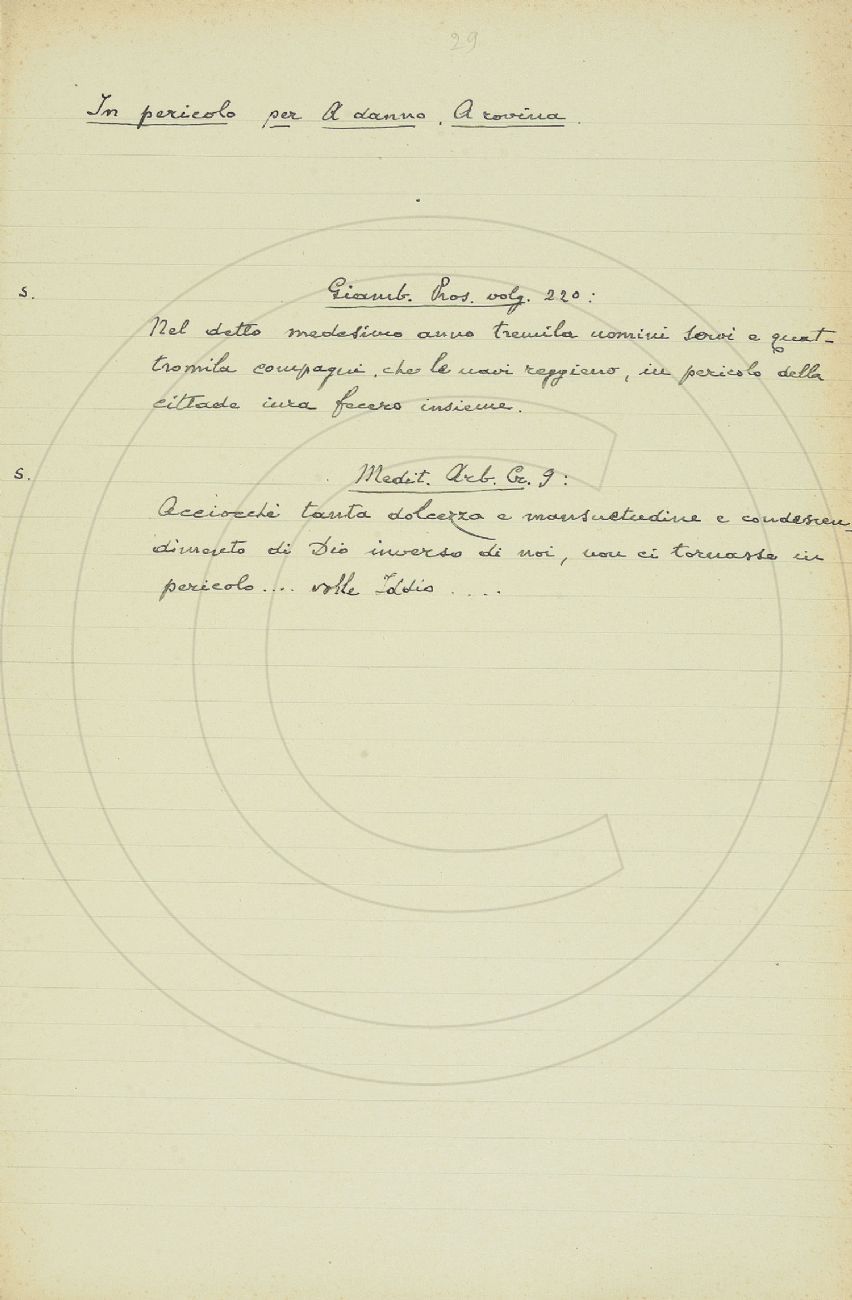 29
In pericolo per A danno. A rovina.
s. Giamb. Pros. volg. 220:
Nel detto medesimo anno tremila uomini servi e quat-
tromila compagni, che le navi reggieno, in pericolo della
cittade iura fecero insieme.
s. Medit. Arb. Cr. 9:
Acciocchè tanta dolcezza e mansuetudine e condescen-
dimento di Dio inverso di noi, non ci tornasse in
pericolo.... volle Iddio ....